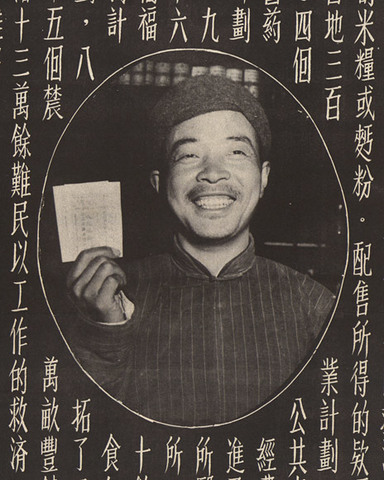 米糧或麫粉。配售所得的欵
地三百
業計劃
四個
公共
藥
經費
劃
進
九
所
六
所
福
十
計
食
，八
拓了
五個農
萬畝豐
十三萬餘難民以工作的救済